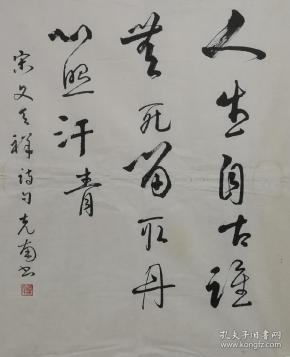 人生自古谁
无死留取丹
心照汗青
宋文天祥诗句 克南书
孔夫子旧书网